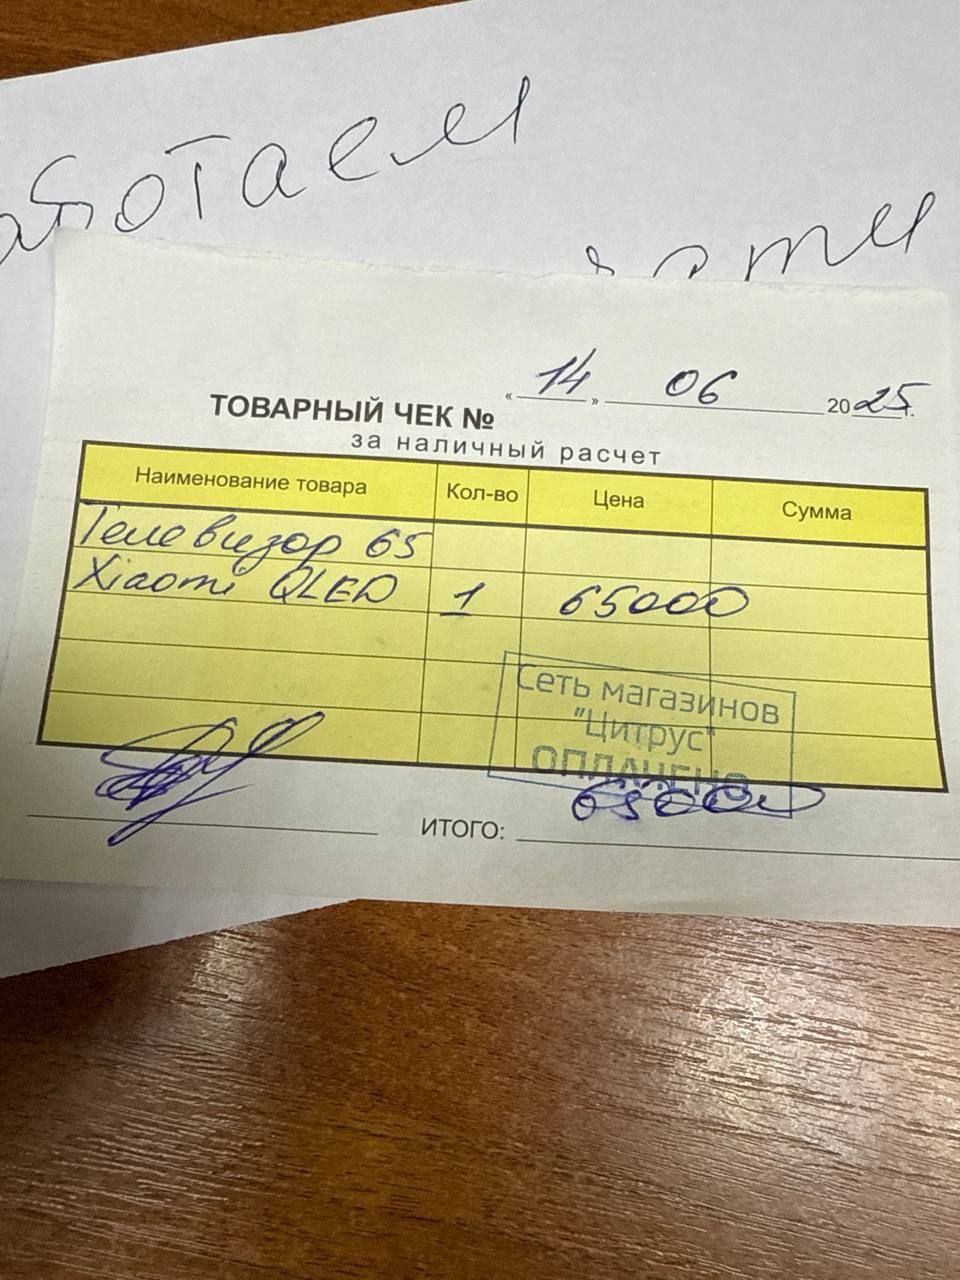 работаем
« 14 » 06 2025г.
ТОВАРНЫЙ ЧЕК №
за наличный расчет
Наименование товара Кол-во Цена Сумма
Телевизор 65
Xiaomi QLED 1 65000
Сеть магазинов
"Цитрус"
ОПЛАЧЕНО
65000
ИТОГО: